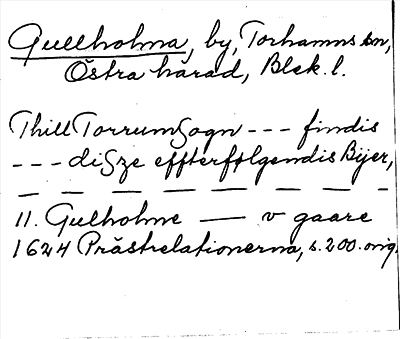 Gullholma, by, Torhamns sn,
Östra härad, Blek. l.
Thill Torrum Sogn --- findis
--- diSze effterfølgendis Bÿer,
— — — — — — —
11. Gulholme — v gaare
1624 Prästrelationerna, s. 200. orig.